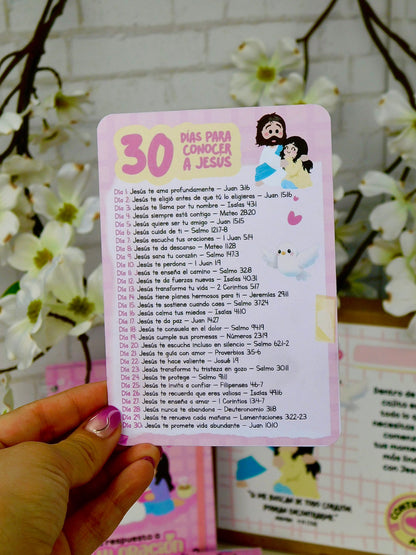 30
DÍAS PARA
CONOCER
A JESÚS
Día 1 Jesús te ama profundamente – Juan 3:16
Día 2 Jesús te eligió antes de que tú lo eligieras – Juan 15:16
Día 3 Jesús te llama por tu nombre – Isaías 43:1
Día 4 Jesús siempre está contigo – Mateo 28:20
Día 5 Jesús quiere ser tu amigo – Juan 15:15
Día 6 Jesús cuida de ti – Salmo 121:7-8
Día 7 Jesús escucha tus oraciones – 1 Juan 5:14
Día 8 Jesús te da descanso – Mateo 11:28
Día 9 Jesús sana tu corazón – Salmo 147:3
Día 10 Jesús te perdona – 1 Juan 1:9
Día 11 Jesús te enseña el camino – Salmo 32:8
Día 12 Jesús te da fuerzas nuevas – Isaías 40:31
Día 13 Jesús transforma tu vida – 2 Corintios 5:17
Día 14 Jesús tiene planes hermosos para ti – Jeremías 29:11
Día 15 Jesús te sostiene cuando caes – Salmo 37:24
Día 16 Jesús calma tus miedos – Isaías 41:10
Día 17 Jesús te da paz – Juan 14:27
Día 18 Jesús te consuela en el dolor – Salmo 94:19
Día 19 Jesús cumple sus promesas – Números 23:19
Día 20 Jesús te escucha incluso en silencio – Salmo 62:1-2
Día 21 Jesús te guía con amor – Proverbios 3:5-6
Día 22 Jesús te hace valiente – Josué 1:9
Día 23 Jesús transforma tu tristeza en gozo – Salmo 30:11
Día 24 Jesús te protege – Salmo 91:1
Día 25 Jesús te invita a confiar – Filipenses 4:6-7
Día 26 Jesús te recuerda que eres valiosa – Isaías 49:16
Día 27 Jesús te enseña a amar – 1 Corintios 13:4-7
Día 28 Jesús nunca te abandona – Deuteronomio 31:8
Día 29 Jesús te renueva cada mañana – Lamentaciones 3:22-23
Día 30 Jesús te promete vida abundante – Juan 10:10
Dentro de